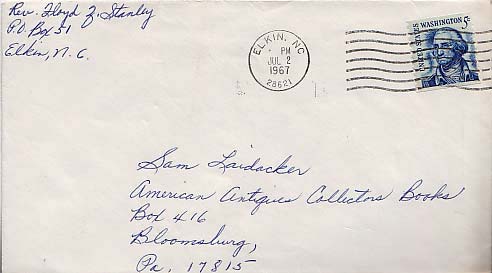 Rev. Floyd Z. Stanley
P.O. Box 51
Elkin, N.C.
ELKIN, NC
PM
JUL 2
1967
28621
UNITED STATES
WASHINGTON 5c
Sam Laidacker
American Antiques Collectors Books
Box 416
Bloomsburg,
Pa, 17815